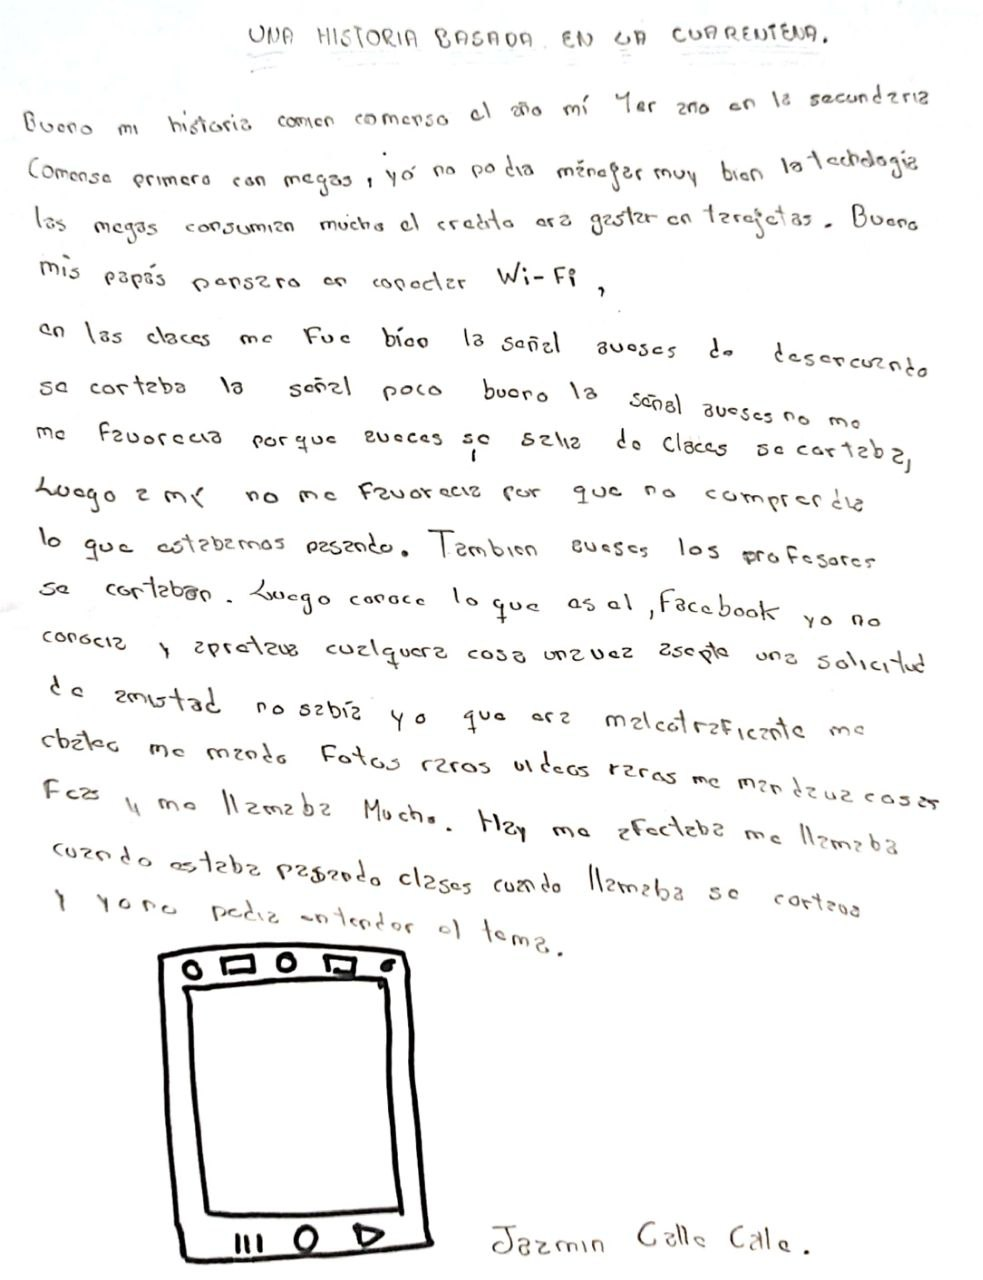 UNA HISTORIA BASADA EN LA CUARENTENA.
Bueno mi historia comen comenso el año mí 1er ano en la secundaria
Comense primero con megas, yó no podia mánejar muy bien la techologia
las megas consumian mucho el credito era gastar en tarajetas. Bueno
mis papás pensaro en conectar Wi-Fi,
en las claces me Fue bíen la señal aveses de desercuando
se cortaba la señal poco bueno la señal aveses no me
me favorecia porque aveces se salia de claces se cortaba,
Luego a mí no me favorecia por que no comprendia
lo que estabamos pasando. Tambien aveses los profesores
se cortaban. Luego conoce lo que es el, Facebook yo no
conocia y apretava cualquera cosa unavez asepte una solicitud
de amistad no sabía yo que era malcotraficante me
chateo me mando Fotos raros videos raras me mandava cosas
Feas y me llamaba Mucho. Hay me afectaba me llamaba
cuando estaba pasando clases cuando llamaba se cortava
Y yo no podia entender el tema.
Jazmin Calle Calle.